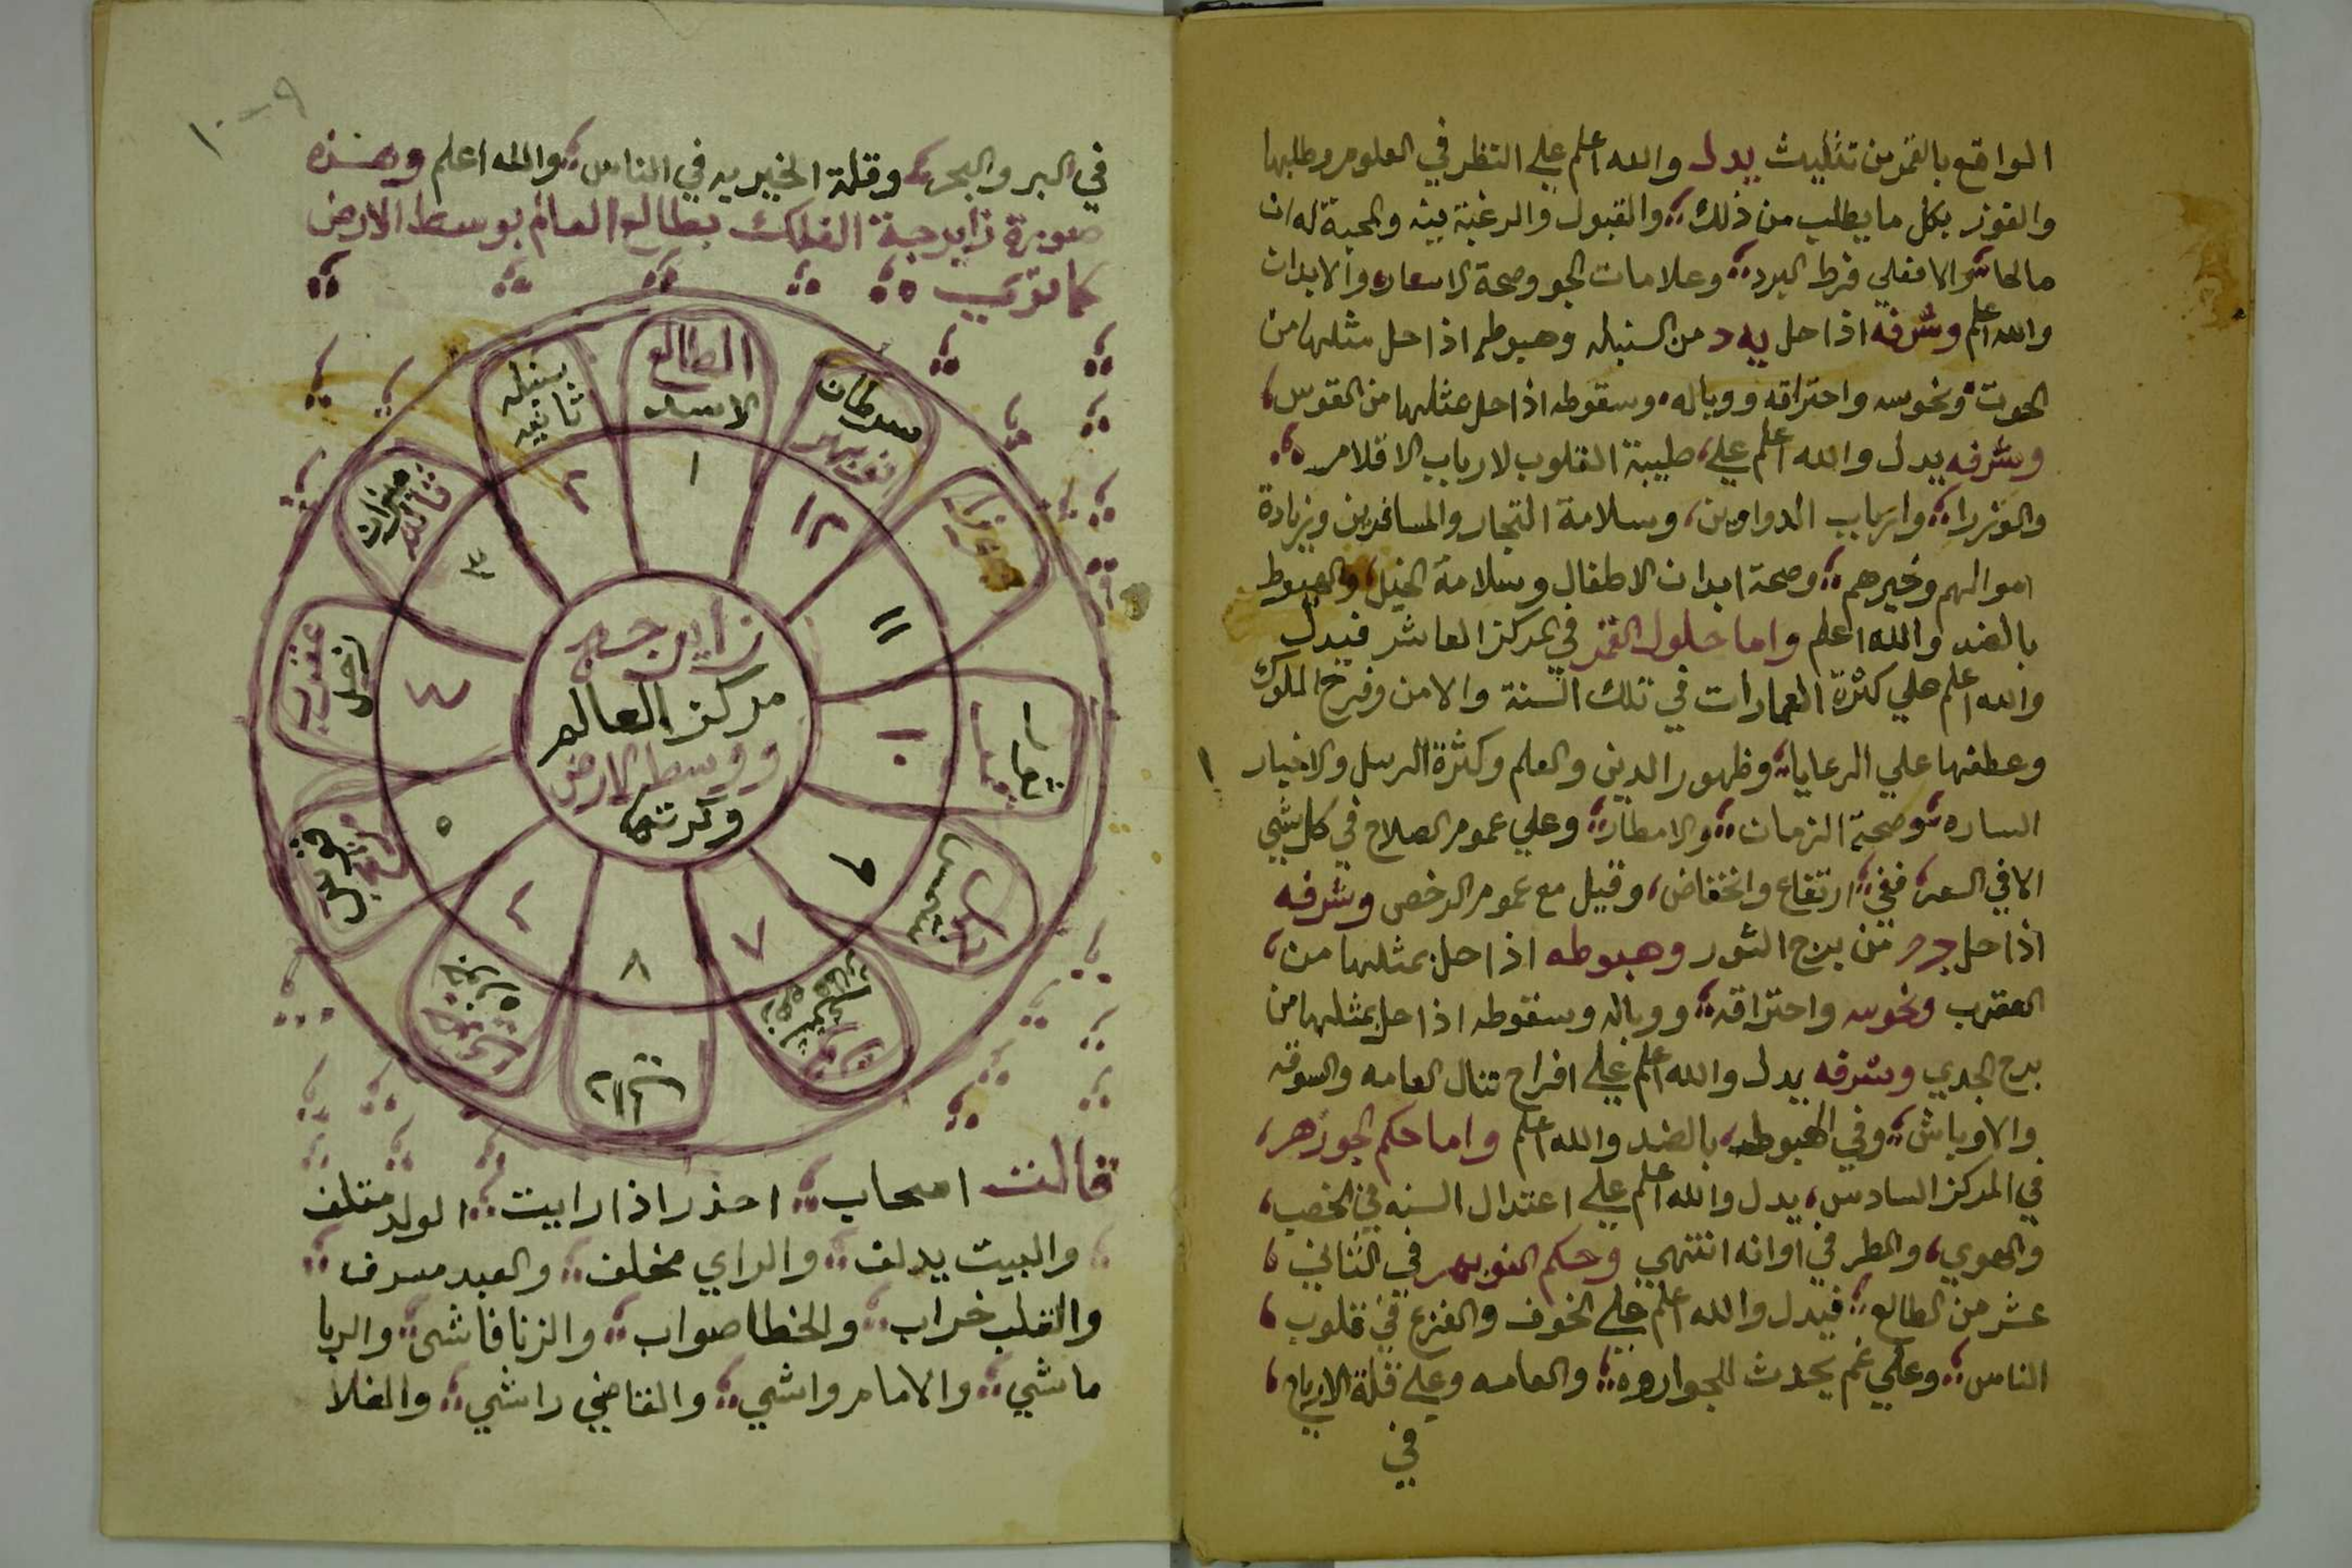 الواقع بالقمر من تثليث يدل والله اعلم علي النظر في العلوم وطلبها
والفوز بكل ما يطلب من ذلك والقبول والرغبة بينه والمحبة له ان
والا فعلي فرط البرد وعلامات الجو وصحة الاسعار والابدان
والله اعلم وشرفه اذا حل يه د من السنبله وهبوطه اذا حل مثلها من
الحوت ونحوسه واحتراقه ووباله وسقوطه اذا حل بمثلها من القوس
وشرفه يدل والله اعلم علي طيبة القلوب لارباب الاقلام
والوزرا وارباب الدواوين وسلامة التجار والمسافرين وزيادة
اموالهم وخيرهم وصحة ابدان الاطفال وسلامة الخيل والهبوط
بالضد والله اعلم واما حلول القمر في المركز العاشر فيدل
والله اعلم علي كثرة العمارات في تلك السنة والامن وفرح الملوك
وعطفها علي الرعايا وظهور الدين والعلم وكثرة الرسل والاخبار
الساره وصحة الزمان والامطار وعلي عموم الصلاح في كل شي
الا في السعر ففي ارتفاع وانخفاض وقيل مع عموم الرخص وشرفه
اذا حل من برج الثور وهبوطه اذا حل بمثلها من
العقرب ونحوسه واحتراقه ووباله وسقوطه اذا حل بمثلها من
برج الجدي وشرفه يدل والله اعلم علي افراح تنال العامه والسوقه
والاوباش وفي الهبوط بالضد والله اعلم واما حكم الجوزهر
في المركز السادس يدل والله اعلم علي اعتدال السنه في الخصب
والهوي والمطر في اوانه انتهي وحكم النوبهر في الثاني
عشر من الطالع فيدل والله اعلم علي الخوف والفزع في قلوب
الناس وعلي غم يحدث للجواروه والعامه وعلي قلة الارباح
في
٩-١٠
في البر والبحر وقلة الخيريه في الناس والله اعلم وهذه
صورة زايرجة الفلك بطالع العالم بوسط الارض
كما تري
الطالع
الاسد
١
سنبله
ثانيه
٢
ميزان
ثالثه
٣
عقرب
زحل
٤
قوس
مريخ
٥
٦
٧
٨
٩
١٠
١١
سرطان
نوبهر
١٢
زايرجه
مركز العالم
ووسط الارض
وكرتها
قالت اصحاب احذر اذا رايت الولد متلف
والبيت يدلف والراي مخلف والعبد مسرف
والقلب خراب والخطا صواب والزنا فاشي والربا
ماشي والامام واشي والقاضي راشي والغلا